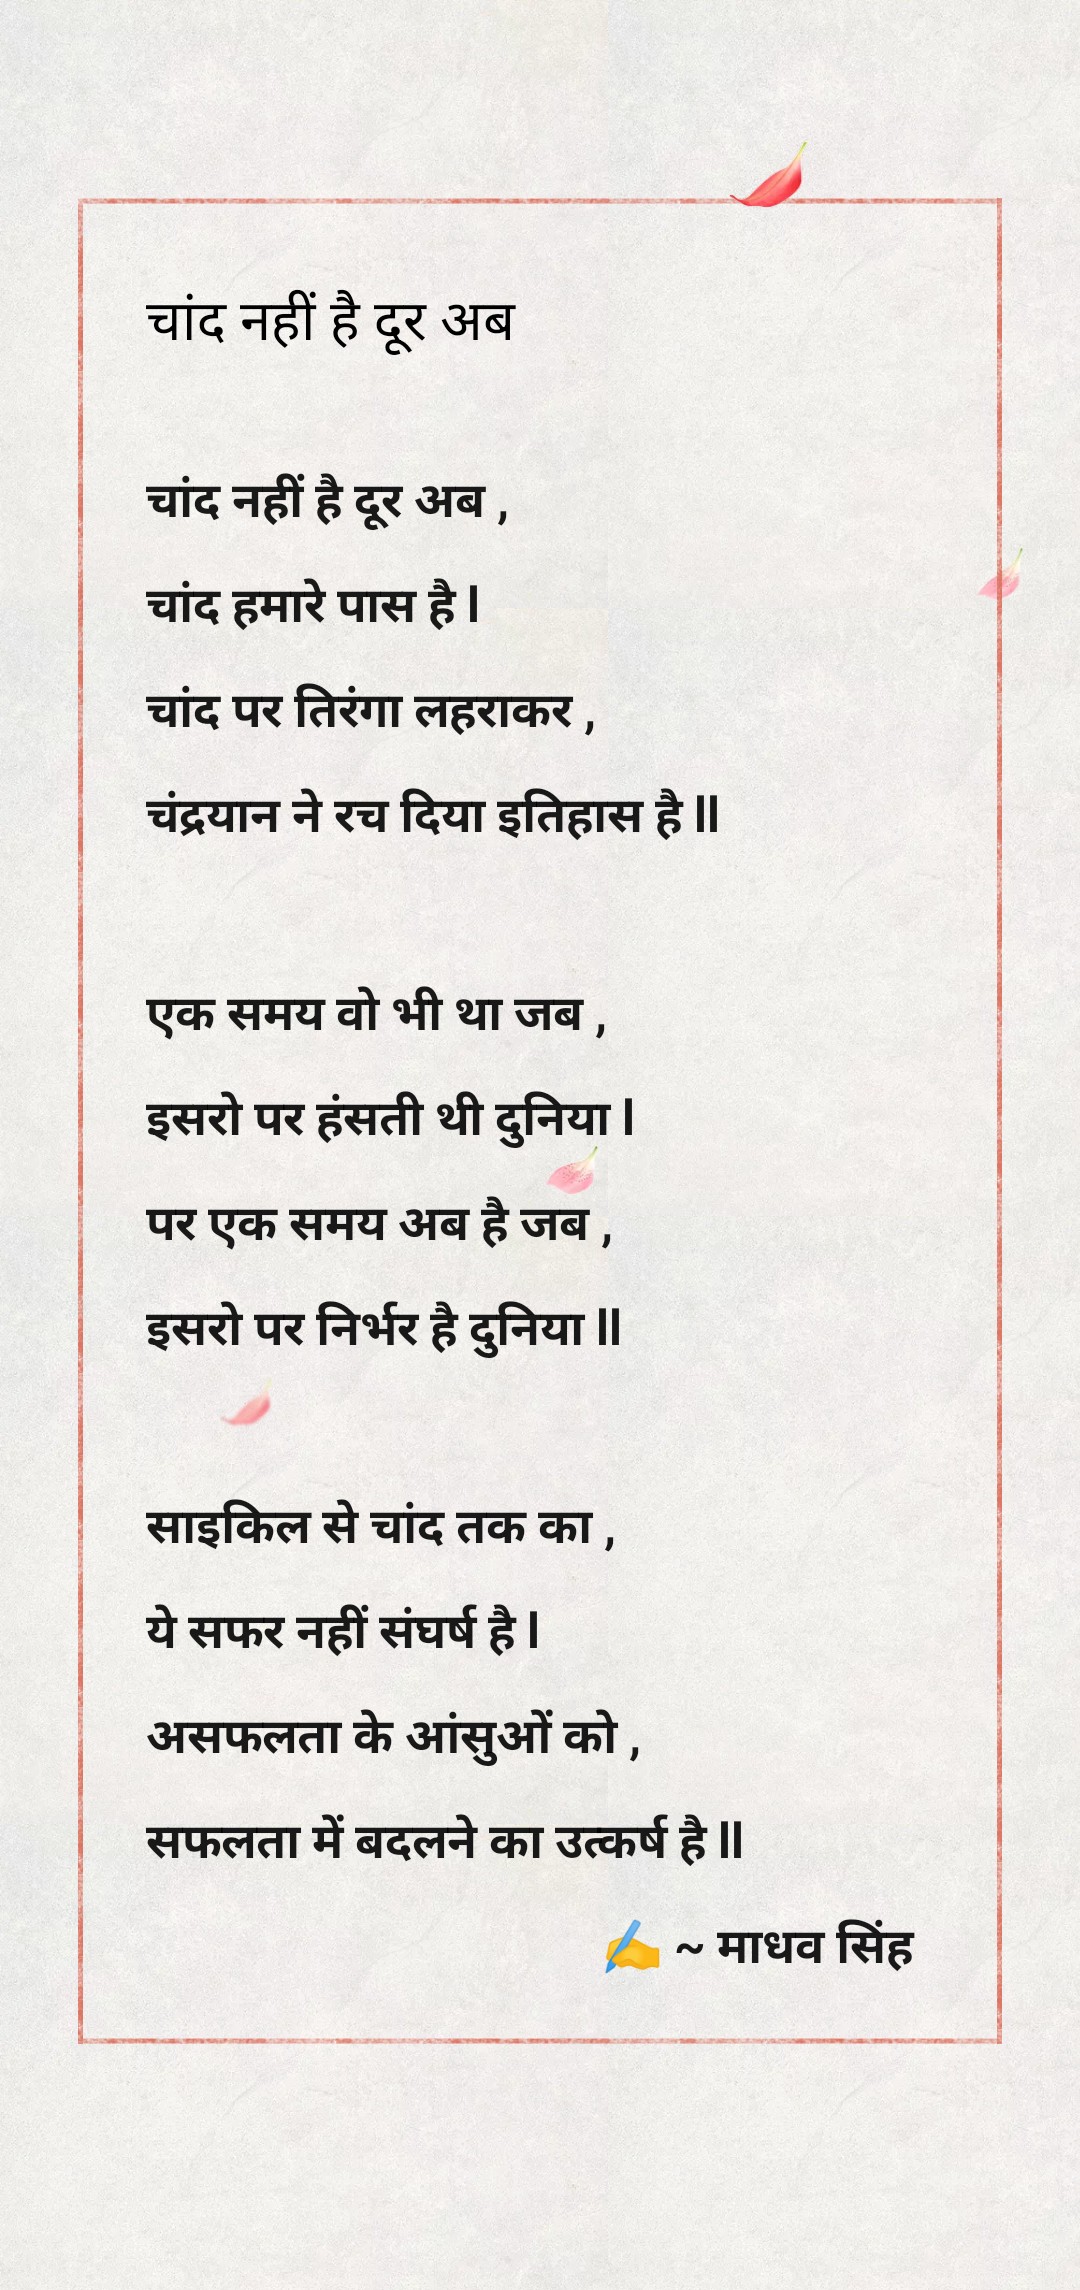 चांद नहीं है दूर अब
चांद नहीं है दूर अब ,
चांद हमारे पास है l
चांद पर तिरंगा लहराकर ,
चंद्रयान ने रच दिया इतिहास है ll
एक समय वो भी था जब ,
इसरो पर हंसती थी दुनिया l
पर एक समय अब है जब ,
इसरो पर निर्भर है दुनिया ll
साइकिल से चांद तक का ,
ये सफर नहीं संघर्ष है l
असफलता के आंसुओं को ,
सफलता में बदलने का उत्कर्ष है ll
✍️ ~ माधव सिंह